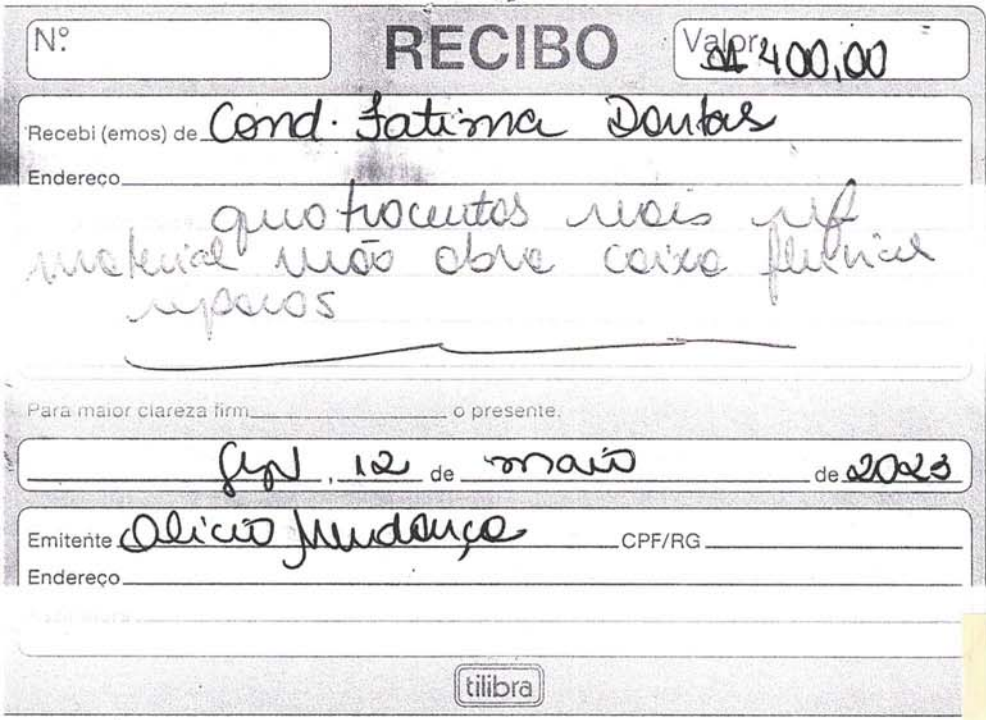 Nº
RECIBO
Valor R$ 400,00
Recebi (emos) de Cond. Fatima Dantas
Endereço
quatrocentos reais ref
material mão obra caixa pluvial
reparos
Para maior clareza firm o presente.
, 12 de maio de 2023
Emitente Alicio Mendonça CPF/RG
Endereço
tilibra